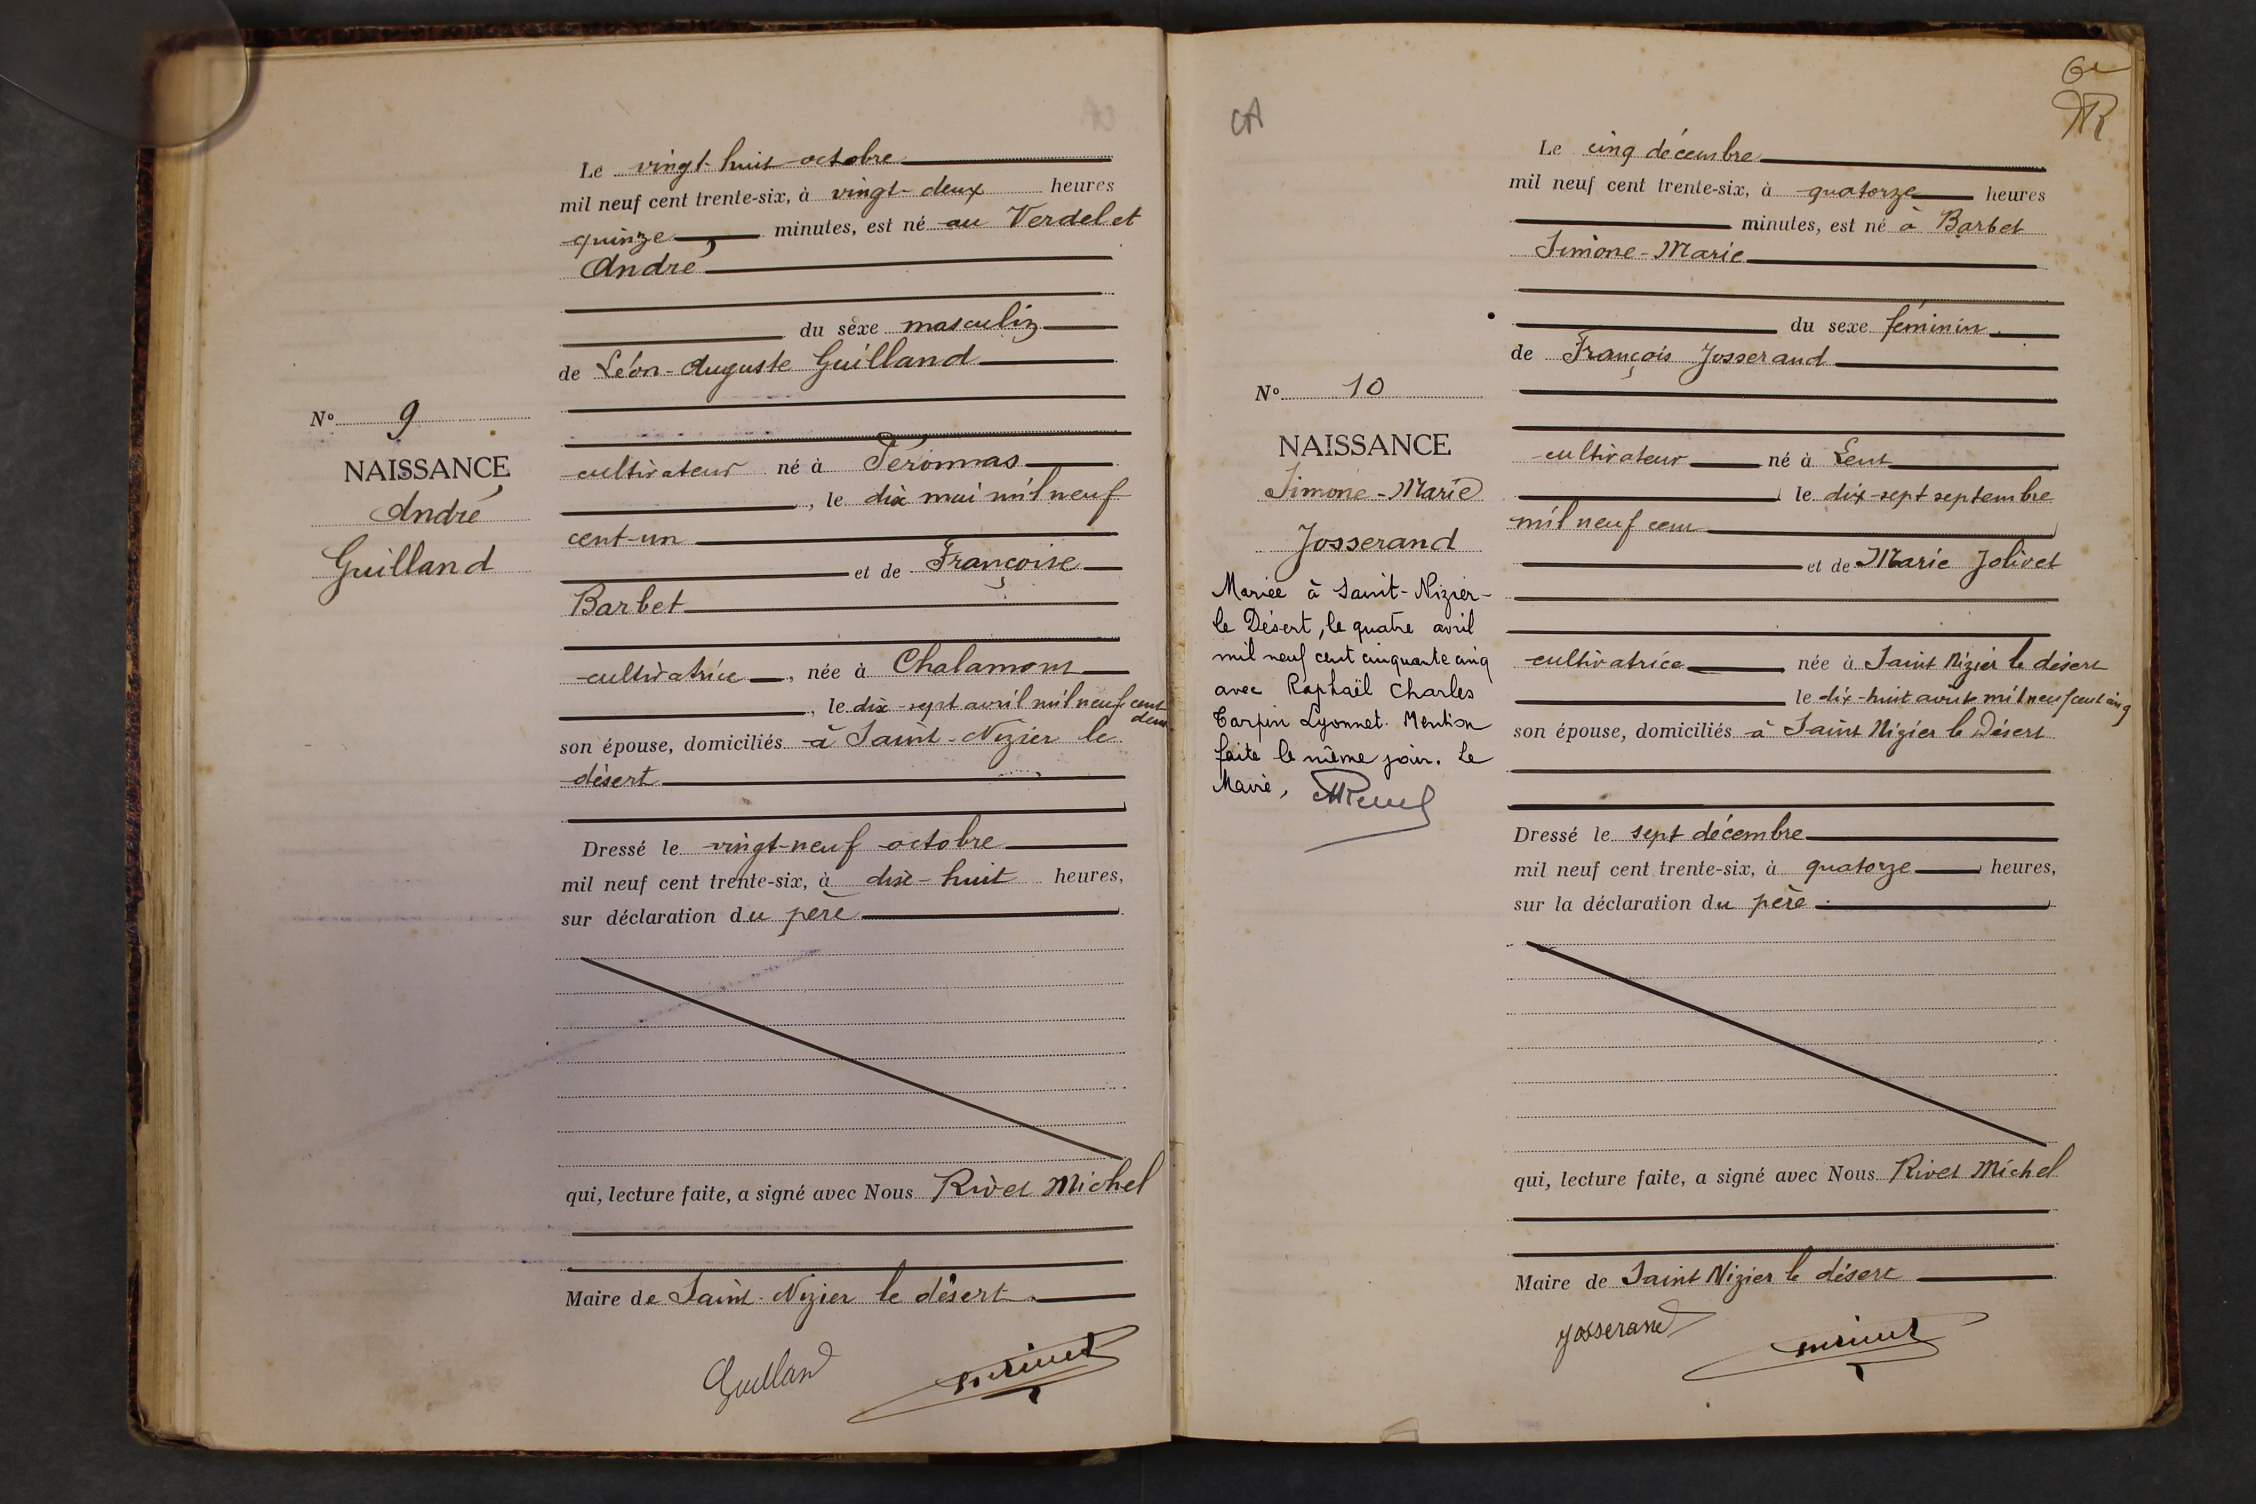 Le vingt-huit octobre
mil neuf cent trente-six, à vingt-deux heures
quinze minutes, est né au Verdelet
André
du sexe masculin
de Léon-Auguste Guilland
N° 9
NAISSANCE
André
Guilland
cultivateur né à Péronnas
, le dix mai mil neuf
cent-un
et de Françoise
Barbet
cultivatrice, née à Chalamont
, le dix-sept avril mil neuf cent
deux
son épouse, domiciliés à Saint-Nizier le
désert
Dressé le vingt-neuf octobre
mil neuf cent trente-six, à dix-huit heures,
sur déclaration du père
qui, lecture faite, a signé avec Nous Rivet Michel
Maire de Saint-Nizier le désert.
Guilland
CA
Le cinq décembre
mil neuf cent trente-six, à quatorze heures
minutes, est né à Barbet
Simone-Marie
du sexe féminin
de François Josserand
N° 10
NAISSANCE
Simone-Marie
Josserand
Mariée à Saint-Nizier-
le Désert, le quatre avril
mil neuf cent cinquante cinq
avec Raphaël Charles
Tarpin Lyonnet. Mention
faite le même jour. Le
Maire,
cultivateur né à Lent
le dix-sept septembre
mil neuf cent
et de Marie Jolivet
cultivatrice née à Saint Nizier le désert
le dix-huit août mil neuf cent cinq
son épouse, domiciliés à Saint Nizier le Désert
Dressé le sept décembre
mil neuf cent trente-six, à quatorze heures,
sur la déclaration du père
qui, lecture faite, a signé avec Nous Rivet Michel
Maire de Saint Nizier le désert
Josserand